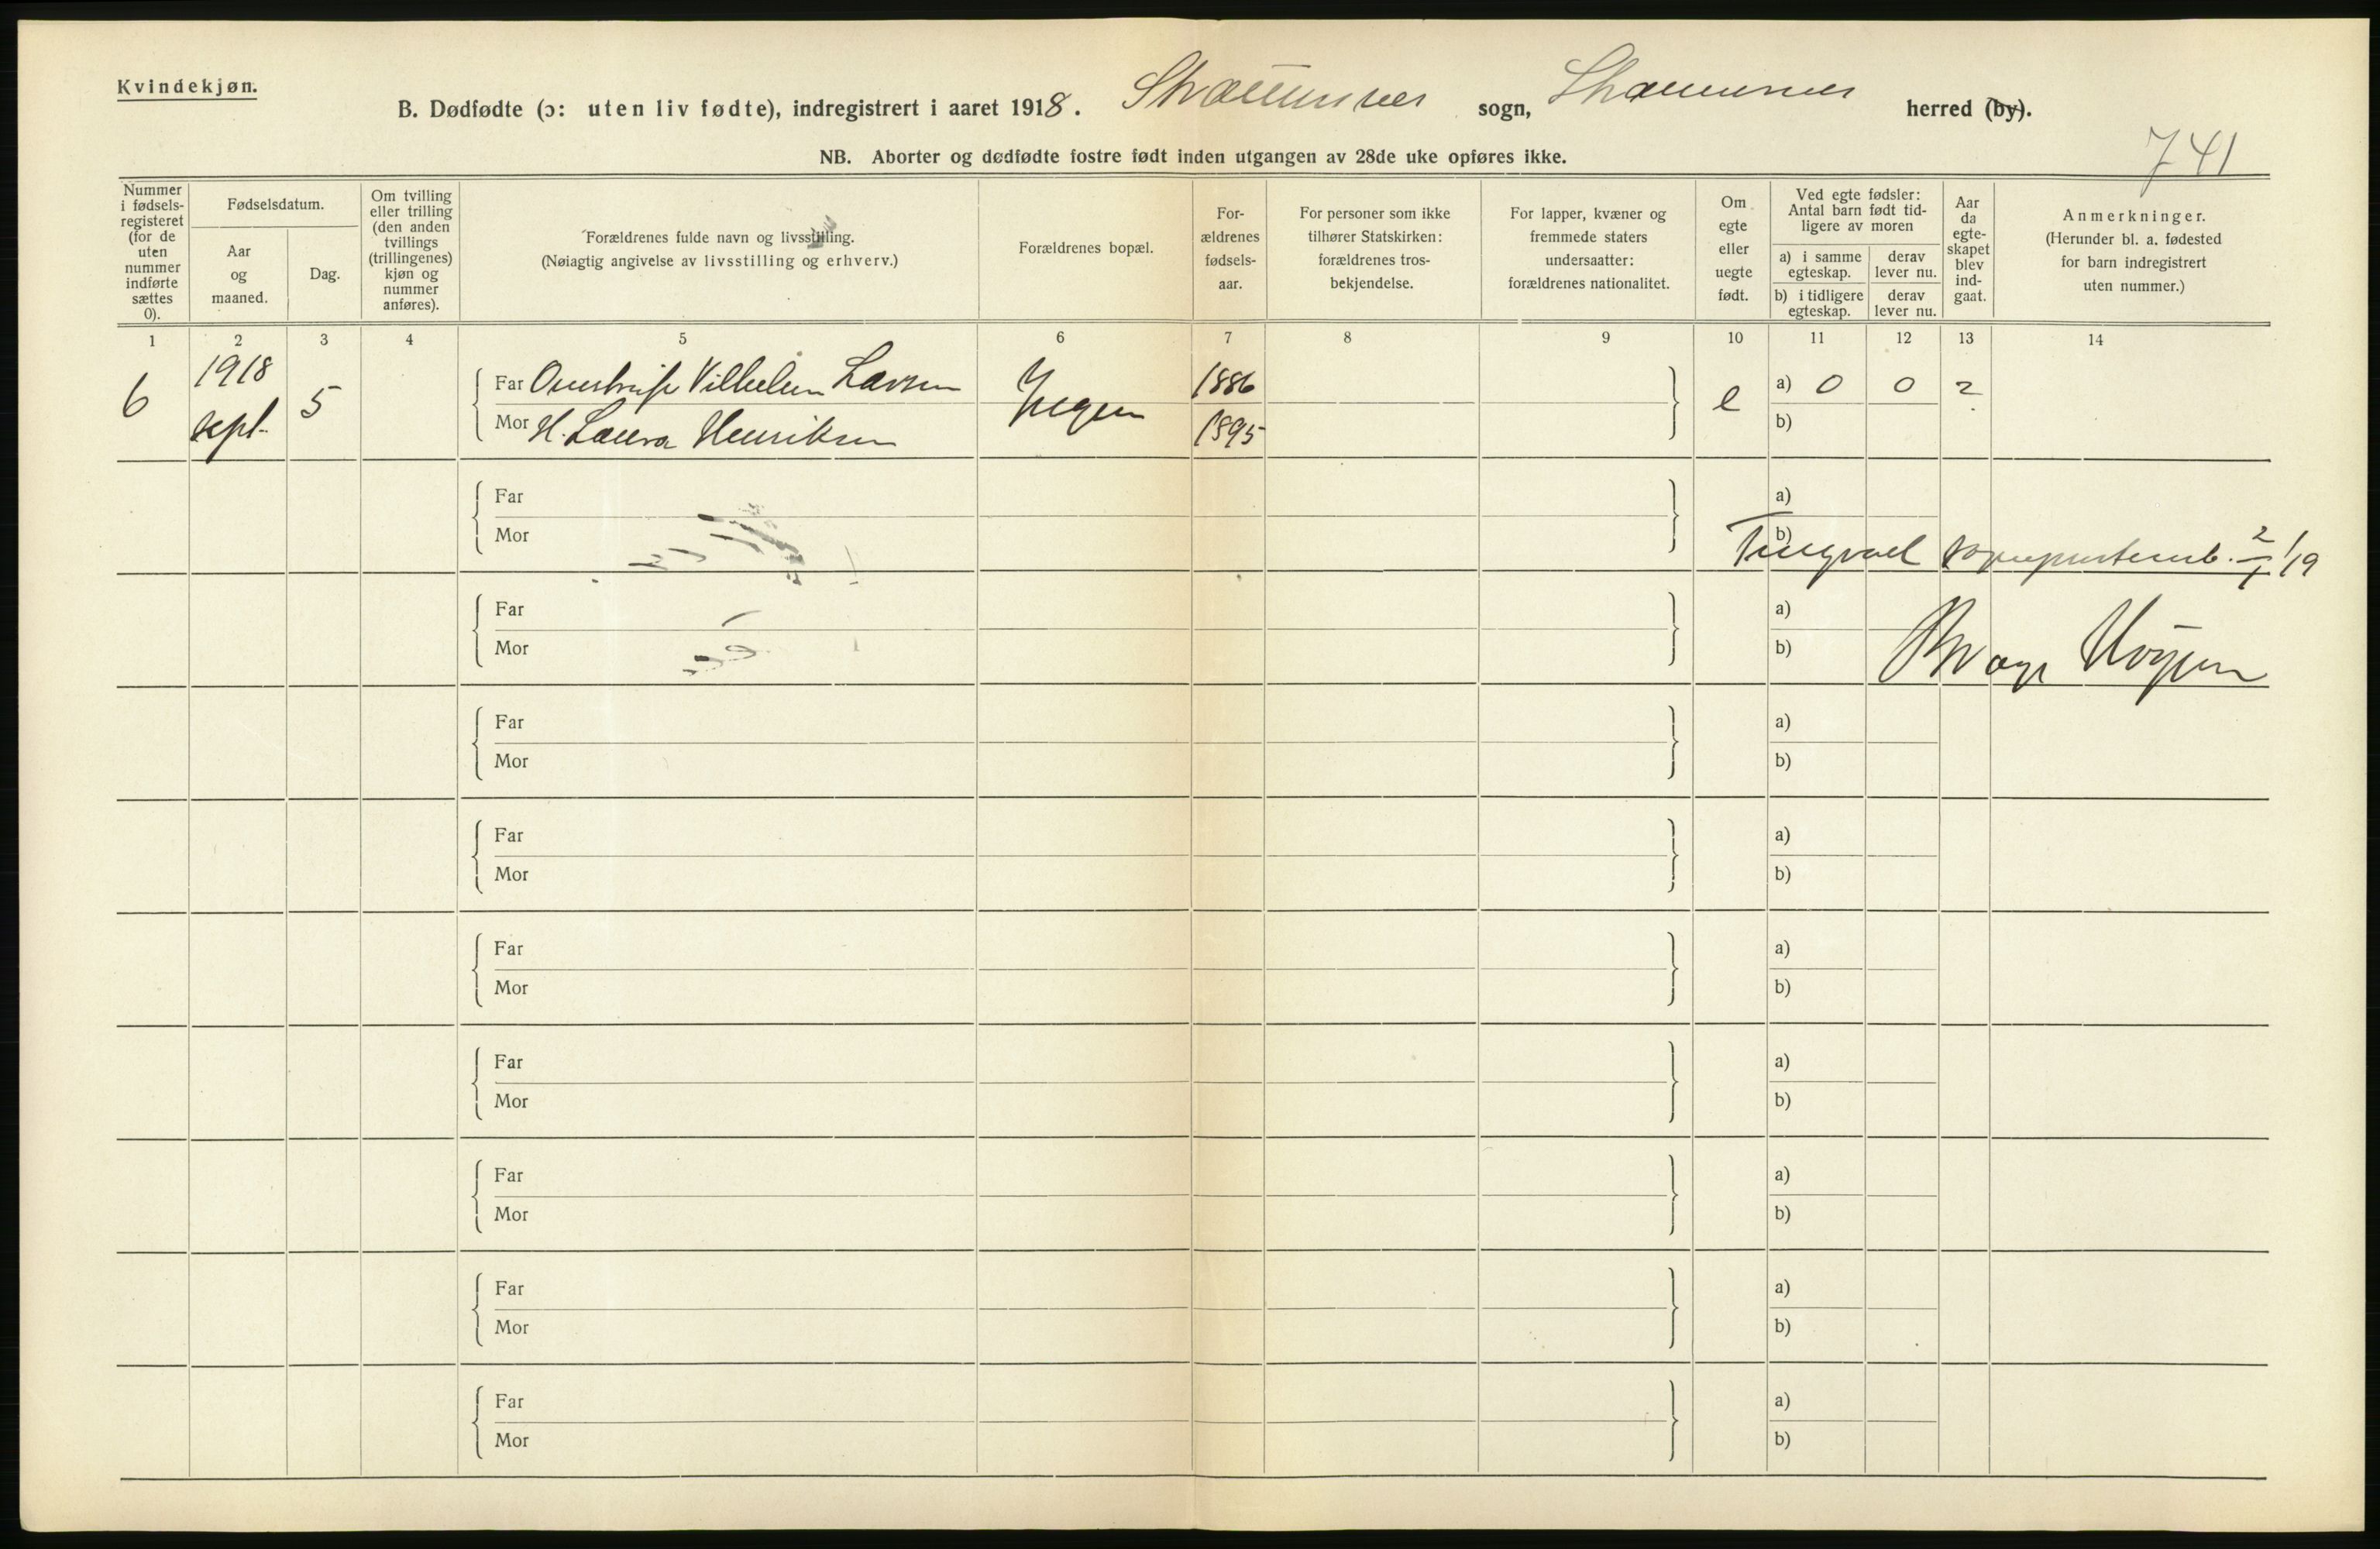 Kvindekjøn.
B. Dødfødte (ɔ: uten liv fødte), indregistrert i aaret 1918. Straumsnes sogn, Straumsnes herred (by).
NB. Aborter og dødfødte fostre født inden utgangen av 28de uke opføres ikke.
741
Nummer i fødsels-registeret (for de uten nummer indførte sættes 0).
Fødselsdatum.
Aar og maaned.
Dag.
Om tvilling eller trilling (den anden tvillings (trillingenes) kjøn og nummer anføres).
Forældrenes fulde navn og livsstilling.
(Nøiagtig angivelse av livsstilling og erhverv.)
Forældrenes bopæl.
For-ældrenes fødsels-aar.
For personer som ikke tilhører Statskirken: forældrenes tros-bekjendelse.
For lapper, kvæner og fremmede staters undersaatter: forældrenes nationalitet.
Om egte eller uegte født.
Ved egte fødsler: Antal barn født tid-ligere av moren
a) i samme egteskap.
derav lever nu.
b) i tidligere egteskap.
derav lever nu.
Aar da egte-skapet blev ind-gaat.
Anmerkninger.
(Herunder bl. a. fødested for barn indregistrert uten nummer.)
1 2 3 4 5 6 7 8 9 10 11 12 13 14
6 1918 sept. 5 Far Vilhelm Larsen 1886 e a) 0 0 2
Mor H. Laura Henriksen 1895 b)
Far a)
Mor b)
Tingvoll 2/1 19
Far a)
Mor b)
Far a)
Mor b)
Far a)
Mor b)
Far a)
Mor b)
Far a)
Mor b)
Far a)
Mor b)
Far a)
Mor b)
Far a)
Mor b)